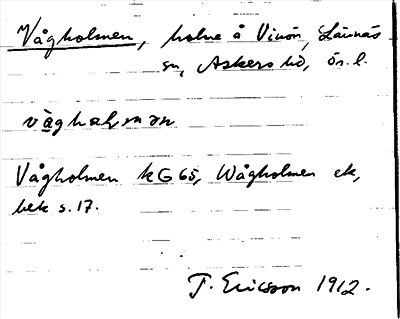 Vågholmen, holme å Vinön, Lännäs
sn, Askers hd, Ör. l.
vàghαlmαn
Vågholmen kG65, Wågholmen ek,
bek s. 17.
T. Ericsson 1912.